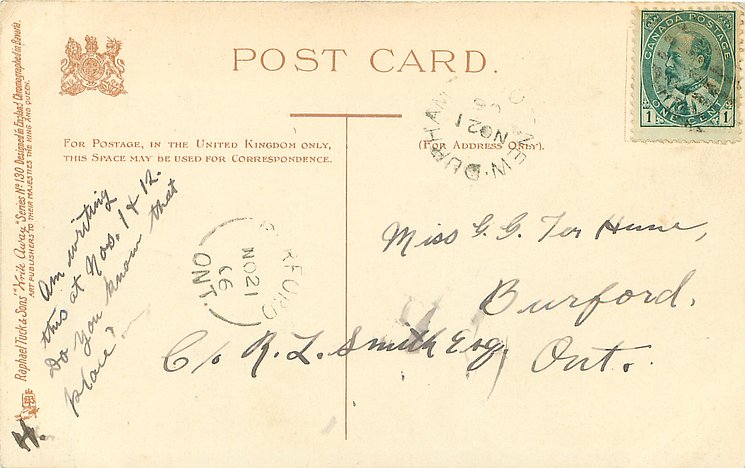 POST CARD.
CANADA POSTAGE
1 ONE CENT 1
NEW DURHAM O
NO 21
06
FOR POSTAGE, IN THE UNITED KINGDOM ONLY,
THIS SPACE MAY BE USED FOR CORRESPONDENCE.
(FOR ADDRESS ONLY).
Raphael Tuck & Sons' "Write Away" Series No. 130 Designed in England Chromographed in Bavaria.
ART PUBLISHERS TO THEIR MAJESTIES THE KING AND QUEEN.
Am writing
this at Nos. 1 & 12.
Do you know that
place?
H.
BURFORD
NO 21
06
ONT.
Miss G. G. Ter Hune,
Burford.
C/o R. L. Smith Esq. Ont.